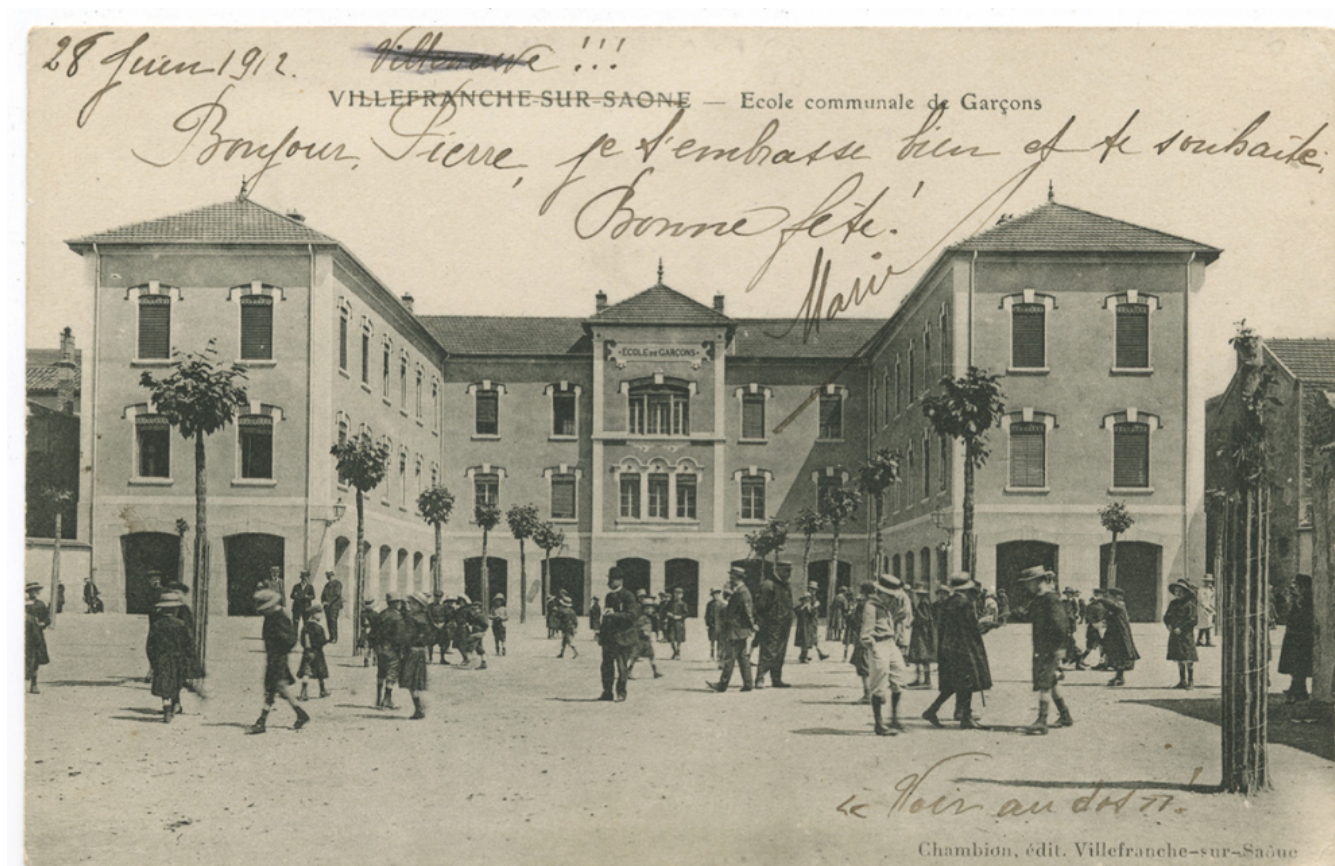 28 Juin 1912. Villeneuve !!!
VILLEFRANCHE-SUR-SAONE — Ecole communale de Garçons
Bonjour, Pierre, je t'embrasse bien et te souhaite
Bonne fête!
Marie
-ECOLE DE GARCONS-
« Voir au dos »!
Chambion, édit. Villefranche-sur-Saône